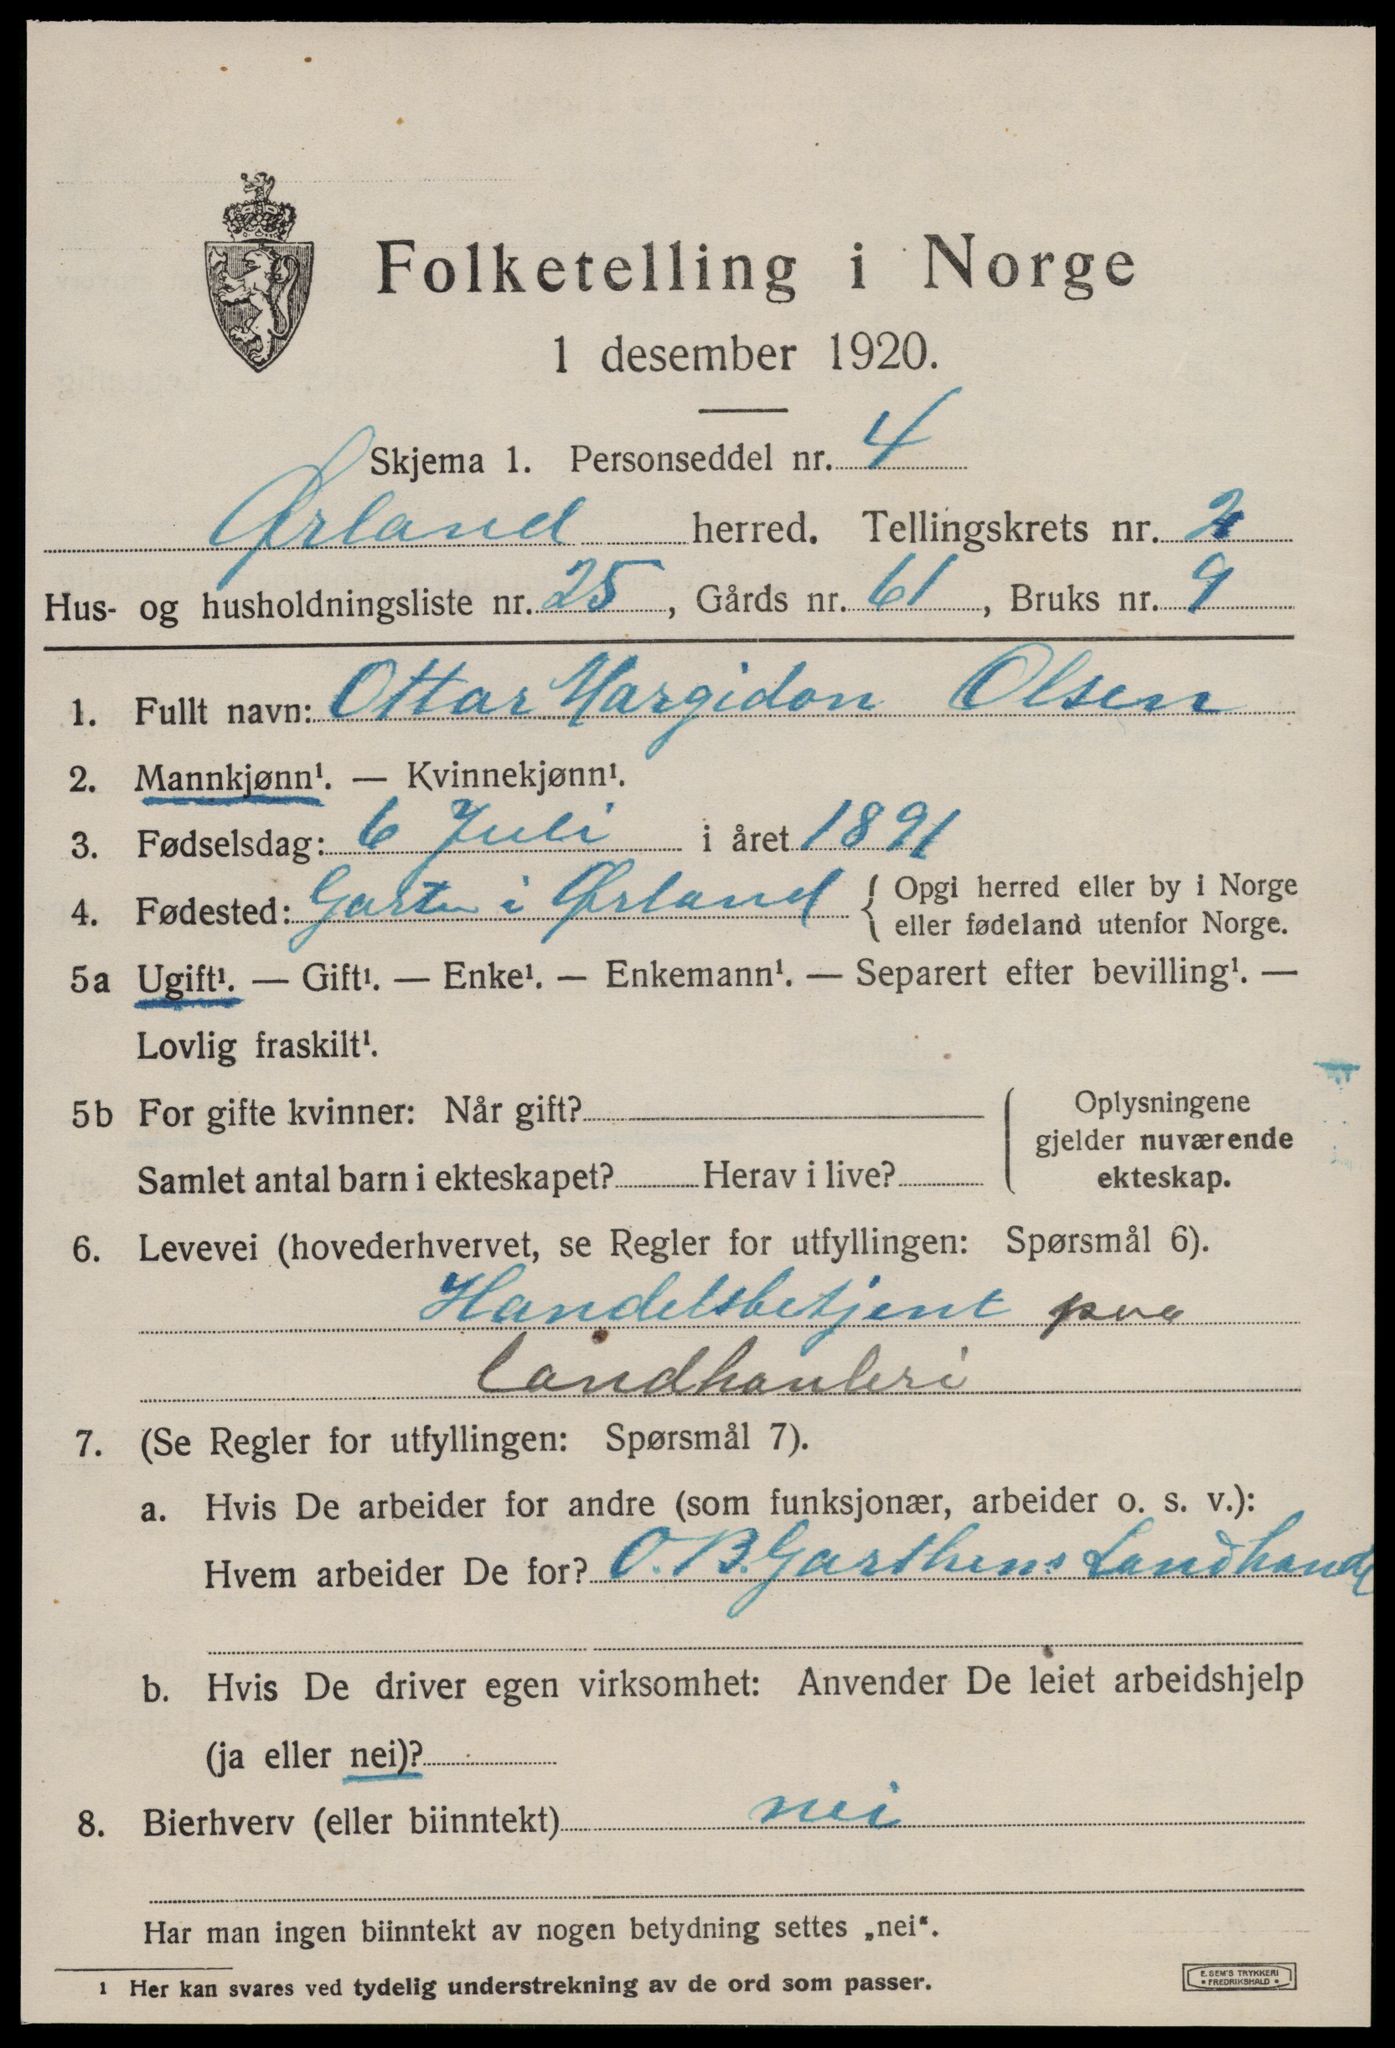 Folketelling i Norge
1 desember 1920.
Skjema 1. Personseddel nr. 4
Ørland herred. Tellingskrets nr. 2
Hus- og husholdningsliste nr. 25, Gårds nr. 61, Bruks nr. 9
1. Fullt navn: Ottar Margidon Olsen
2. Mannkjønn¹. — Kvinnekjønn¹.
3. Fødselsdag: 6 Juli i året 1891
4. Fødested: Garten i Ørland { Opgi herred eller by i Norge
eller fødeland utenfor Norge.
5a Ugift¹. — Gift¹. — Enke¹. — Enkemann¹. — Separert efter bevilling¹. —
Lovlig fraskilt¹.
5b For gifte kvinner: Når gift?
Samlet antal barn i ekteskapet? Herav i live?
Oplysningene
gjelder nuværende
ekteskap.
6. Levevei (hovederhvervet, se Regler for utfyllingen: Spørsmål 6).
Handelsbetjent paa
landhanleri
7. (Se Regler for utfyllingen: Spørsmål 7).
a. Hvis De arbeider for andre (som funksjonær, arbeider o. s. v.):
Hvem arbeider De for? O. B. Garthens Landhandl
b. Hvis De driver egen virksomhet: Anvender De leiet arbeidshjelp
(ja eller nei)?
8. Bierhverv (eller biinntekt) nei
Har man ingen biinntekt av nogen betydning settes „nei“.
¹ Her kan svares ved tydelig understrekning av de ord som passer.
E. SEM'S TRYKKERI
• FREDRIKSHALD •